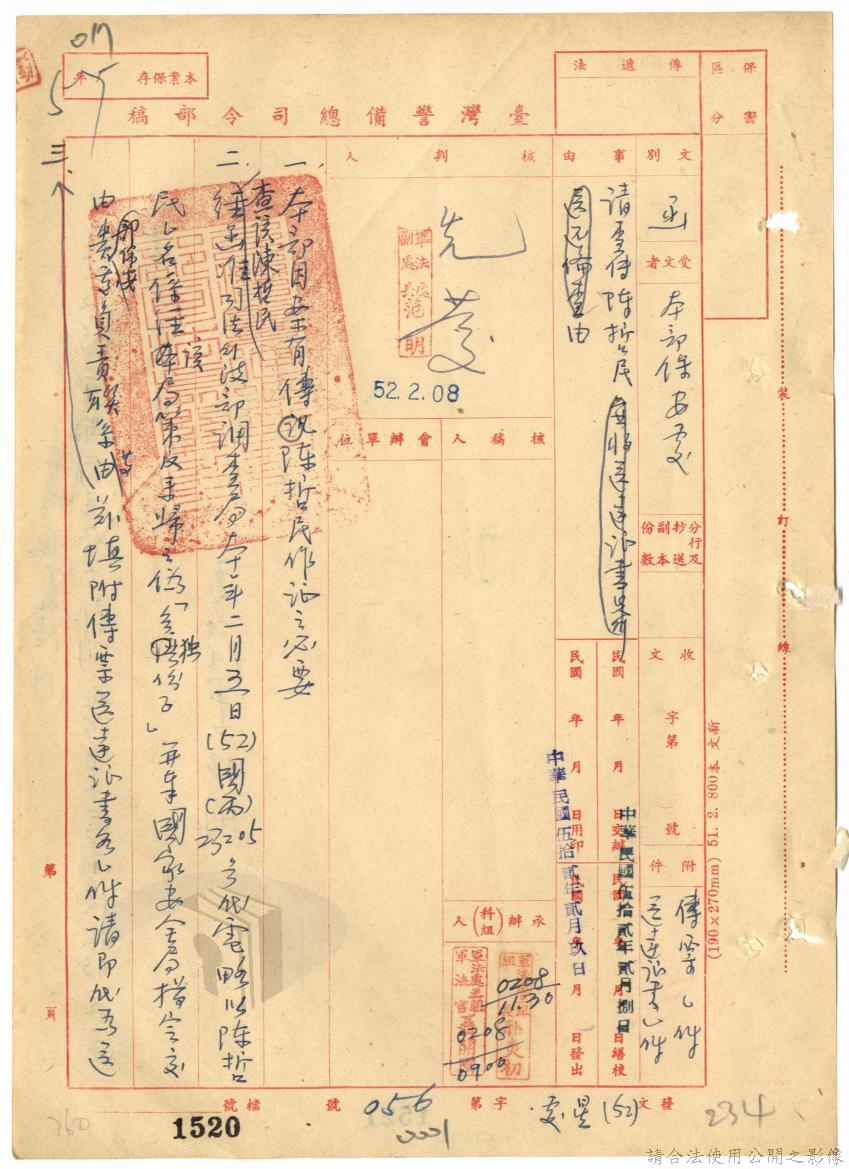 臺灣警備總司令部稿
本案保存 年
傳遞法
保密區分
文別
函
受文者
本部保安處
事由
請查傳陳哲民
送達證書
備查由
核判人
先發
軍法處副處長范明
52.2.08
會辦單位
核稿人
分行及抄送副本份數
收文 字第 號
附件
傳票乙件
送達證書乙件
民國 年 月 日交辦
民國 年 月 日繕校
民國 年 月 日用印
民國 年 月 日發出
中華民國伍拾貳年貳月捌日
中華民國伍拾貳年貳月玖日
承辦(科組)人
0208
11.30
0208
0900
裝訂線
(190×270mm) 51.2.800本 文新
一、本部因案有傳訊陳哲民作証之必要
二、經函准司法行政部調查局本年二月五日(52)國(丙)23205號代電略以陳哲
民乙名係經該局策反來歸之偽「台獨份子」並奉國家安全局指令交
由貴
負責聯系
茲填附傳票送達證書各乙件請即代為送
第 頁
發文
(52)
字第
056
號
檔號
0001
1520
234
360
請合法使用公開之影像